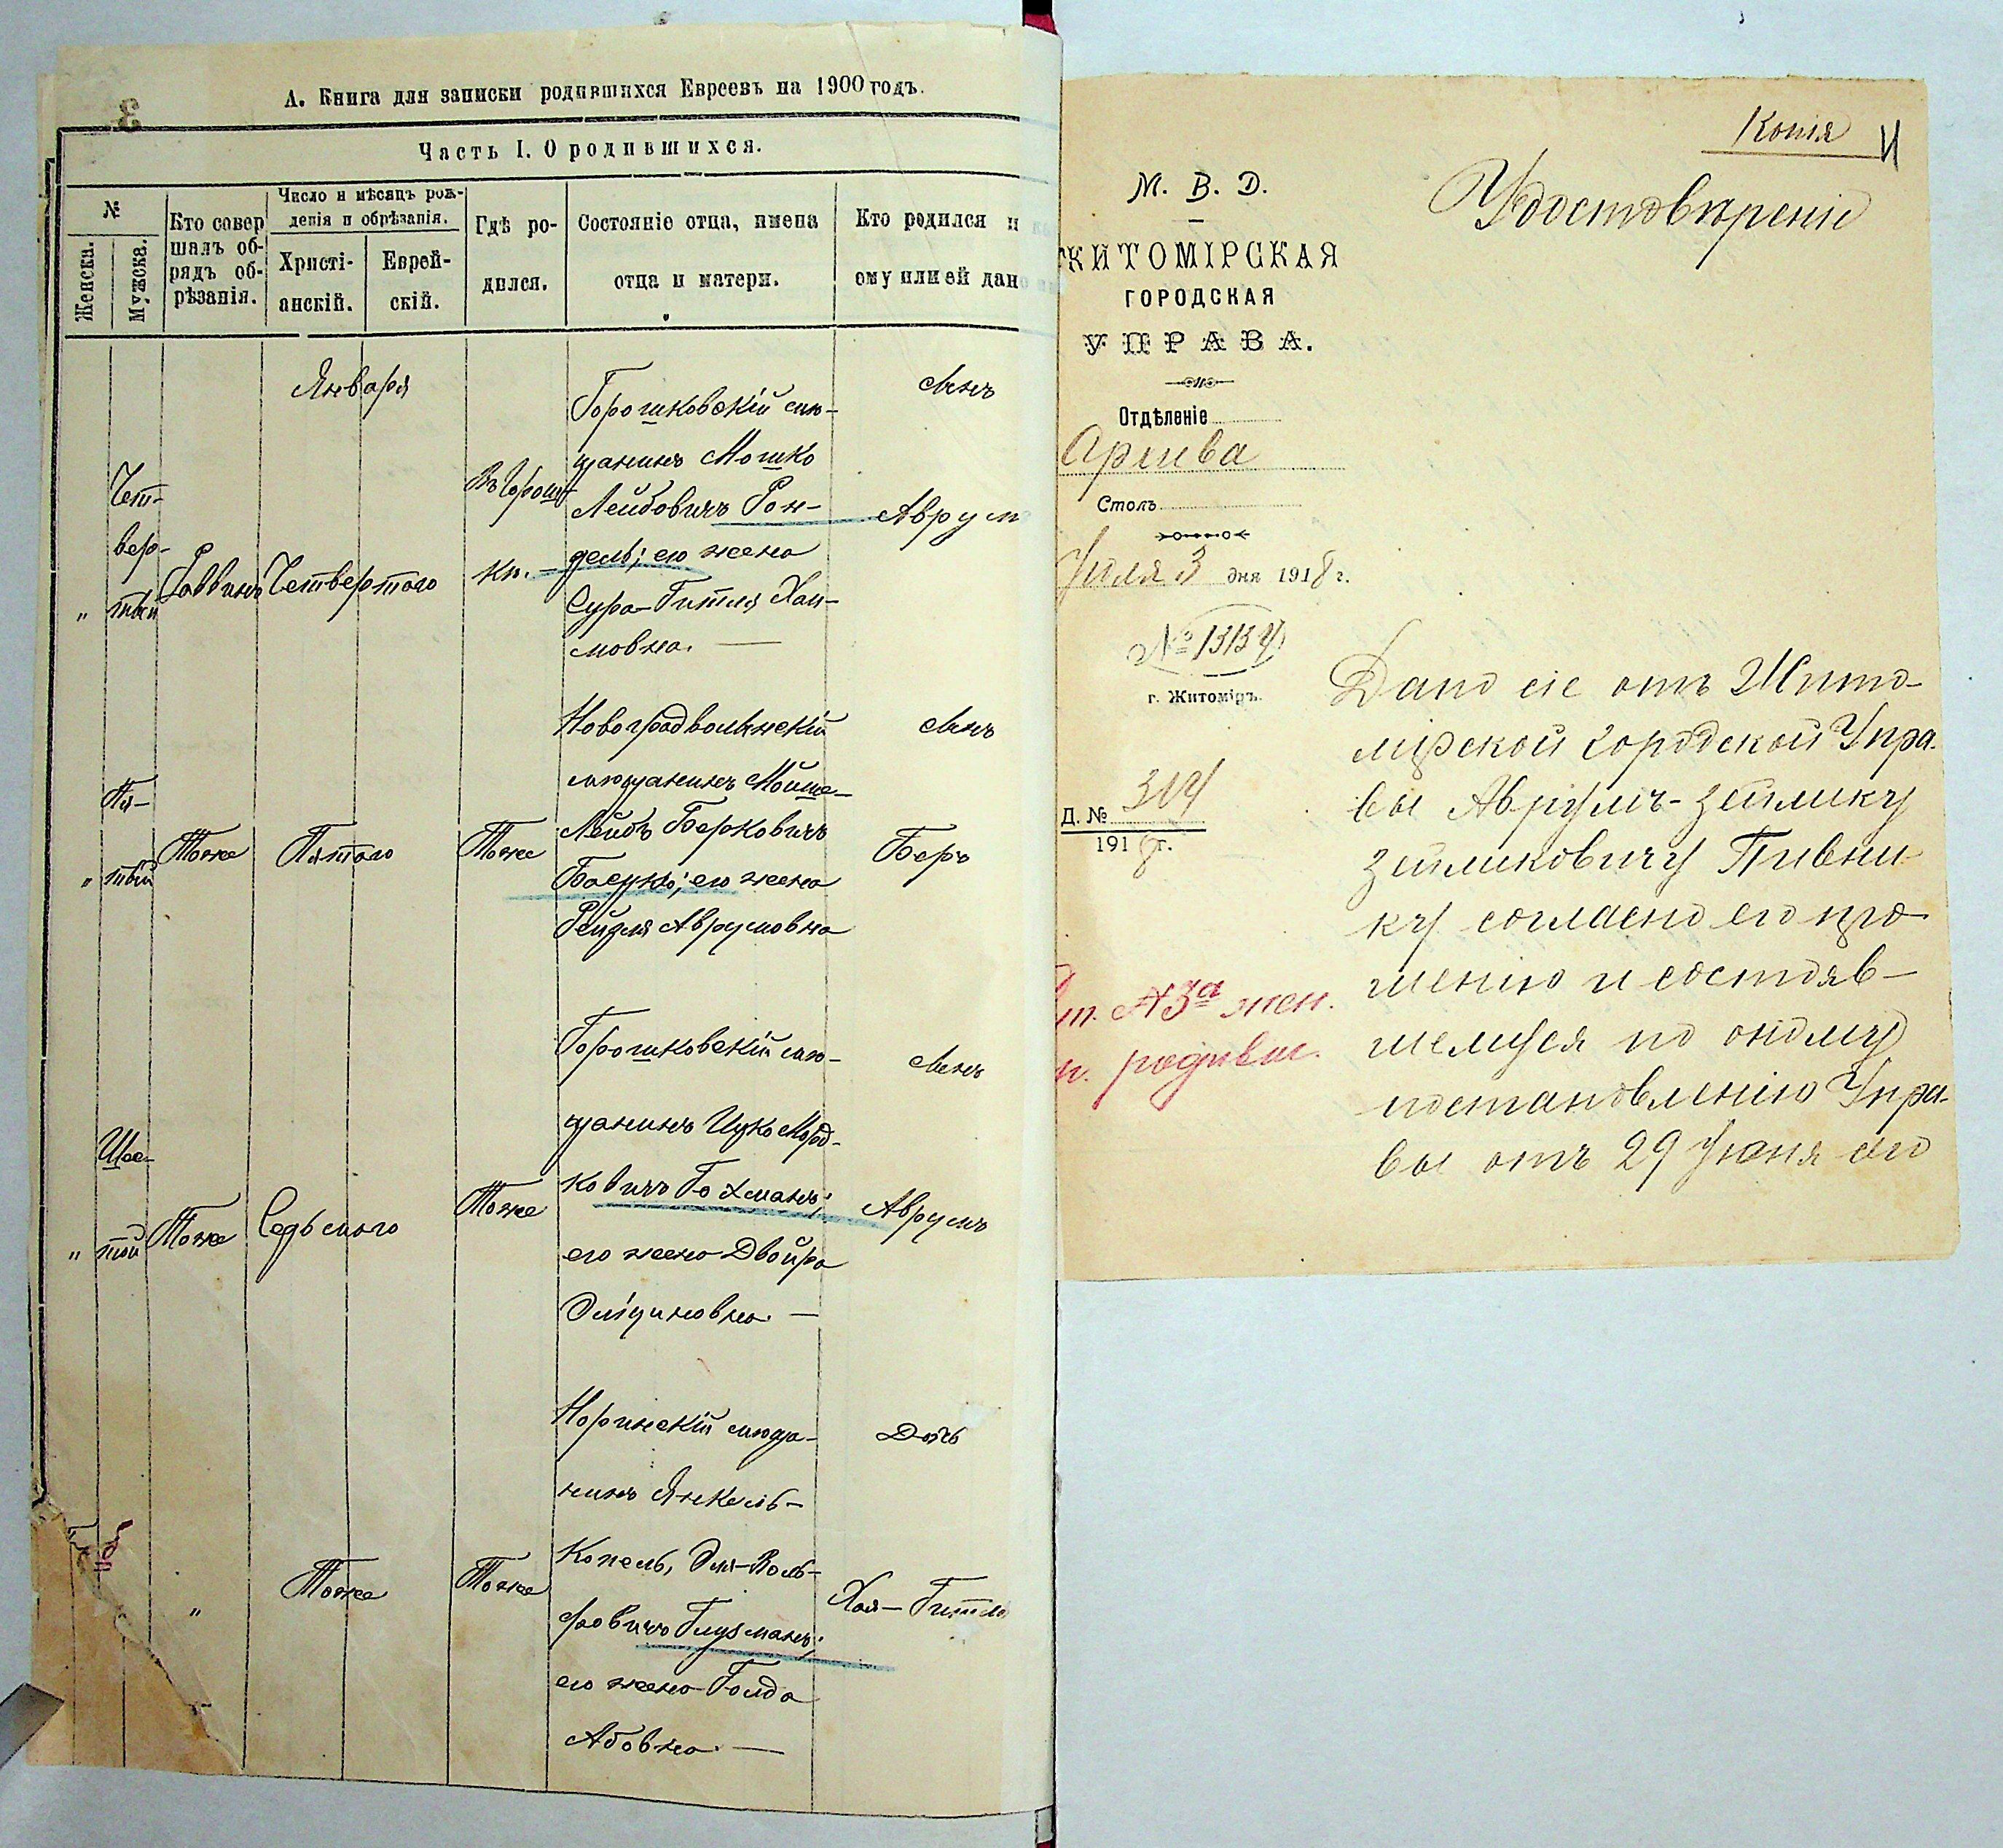 А. Книга для записки родившихся Евреевъ на 1900 годъ.
Часть I. О родившихся.
№
Женска.
Мужска.
Кто совер
шалъ об-
рядъ об-
рѣзанія.
Число и мѣсяцъ рож-
денія и обрѣзанія.
Христі-
анскій.
Еврей-
скій.
Гдѣ ро-
дился.
Состояніе отца, имена
отца и матери.
Кто родился и
ому или ей дано
Января
"
Чет-
вер-
тый
Раввинъ
Четвертого
Въ Горош-
кѣ.
Горошковскій мѣ-
щанинъ Мошко
Лейбовичъ Рон-
дель; его жена
Сура-Гитля Хаи-
мовна. —
Сынъ
Аврумъ
"
Пя-
тый
Тоже
Пятого
Тоже
Новоградволынскій
мѣщанинъ Мойше-
Лейбъ Берковичъ
Басукъ; его жена
Рейзля Аврумовна
Сынъ
Беръ
"
Шес-
той
Тоже
Седьмого
Тоже
Горошковскій мѣ-
щанинъ Ицко Морд-
ковичъ Гохманъ;
его жена Двойра
Эліуновна. —
Сынъ
Аврумъ
"
Тоже
Тоже
Норинскій мѣща-
нинъ Янкель-
Копель, Эля-Воль-
фовичъ Глузманъ;
его жена Голда
Абовна. —
Дочь
Хая-Гитля
Копія
М. В. Д.
ЖИТОМІРСКАЯ
ГОРОДСКАЯ
УПРАВА.
Отдѣленіе
Архива
Столъ
Іюля 3 дня 1918 г.
№ 13134
г. Житоміръ.
Д. № 314
1918 г.
А 3а жен.
родивш.
Удостовѣреніе
Дано сіе отъ Жито-
мірской Городской Упра-
вы Аврумъ-Зейлику
Зейликовичу Пивни-
ку согласно его про-
шенію и состояв-
шемуся по оному
постановленію Упра-
вы отъ 29 Іюня сего